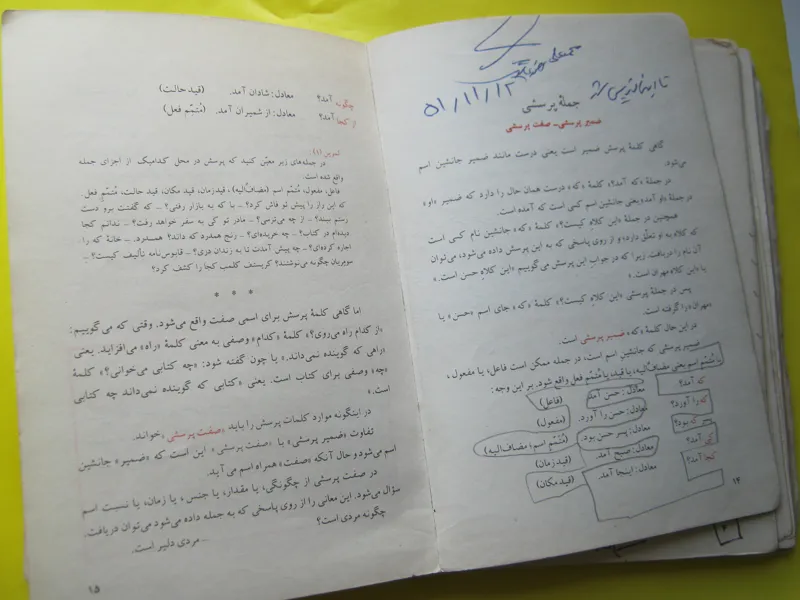 تا اینجا تدریس شد
۵۱/۱۱/۱۲
جملهٔ پرسشی
ضمیر پرسشی ـ صفت پرسشی
گاهی کلمهٔ پرسش ضمیر است یعنی درست مانند ضمیر جانشین اسم
می‌شود.
در جملهٔ «که آمد؟» کلمهٔ «که» درست همان حال را دارد که ضمیر «او»
در جملهٔ «او آمد» یعنی جانشین اسم کسی است که آمده است.
همچنین در جملهٔ «این کلاهِ کیست؟» کلمهٔ «که» جانشین نام کسی است
که کلاه به او تعلّق دارد؛ و از روی پاسخی که به این پرسش داده می‌شود، می‌توان
آن نام را دریافت. زیرا که در جواب این پرسش می‌گوییم «این کلاهِ حسن است.»
یا «این کلاهِ مهران است.»
پس در جملهٔ پرسشی «این کلاهِ کیست؟» کلمهٔ «که» جای اسم «حسن» یا
«مهران» را گرفته است.
در این حال کلمهٔ «که» ضمیر پرسشی است.
ضمیر پرسشی که جانشین اسم است، در جمله ممکن است فاعل، یا مفعول،
یا مُتمّم اسم یعنی مضافٌ‌الیه، یا قید، یا مُتمّم فعل واقع شود. بر این وجه:
که آمد؟ معادل: حسن آمد (فاعل)
که را آورد؟ معادل: حسن را آورد. (مفعول)
پسر که بود؟ معادل: پسر حسن بود. (مُتمّم اسم؛ مضافٌ‌الیه)
کی آمد؟ معادل: صبح آمد. (قید زمان)
کجا آمد؟ معادل: اینجا آمد. (قید مکان)
۱۴
چگونه آمد؟ معادل: شادان آمد. (قید حالت)
از کجا آمد؟ معادل: از شمیران آمد. (مُتمّم فعل)
تمرین (۱)
در جمله‌های زیر معیّن کنید که پرسش در محل کدامیک از اجزای جمله
واقع شده است.
فاعل، مفعول، مُتمّم اسم (مضافٌ‌الیه)، قید زمان، قید مکان، قید حالت، مُتمّم فعل.
که این راز را پیش تو فاش کرد؟ ـ با که به بازار رفتی؟ ـ که گفتت برو دست
رستم ببند؟ ـ از چه می‌ترسی؟ ـ مادر تو کی به سفر خواهد رفت؟ ـ ندانم کجا
دیده‌ام در کتاب؟ ـ چه خریده‌ای؟ ـ رنج همدرد که داند؟ همدرد. ـ خانهٔ که را
اجاره کرده‌ای؟ ـ چه پیش آمدت تا به زندان دری؟ ـ قابوس‌نامه تألیف کیست؟ ـ
سومریان چگونه می‌نوشتند؟ کریستف کلمب کجا را کشف کرد؟
* * *
اما گاهی کلمهٔ پرسش برای اسمی صفت واقع می‌شود. وقتی که می‌گوییم:
«از کدام راه می‌روی؟» کلمهٔ «کدام» وصفی به معنی کلمهٔ «راه» می‌افزاید. یعنی
«راهی که گوینده نمی‌داند.» یا چون گفته شود: «چه کتابی می‌خوانی؟» کلمهٔ
«چه» وصفی برای کتاب است. یعنی «کتابی که گوینده نمی‌داند چه کتابی
است.»
در اینگونه موارد کلمات پرسش را باید «صفت پرسشی» خواند.
تفاوت «ضمیر پرسشی» با «صفت پرسشی» این است که «ضمیر» جانشین
اسم می‌شود و حال آنکه «صفت» همراه اسم می‌آید.
در صفت پرسشی از چگونگی، یا مقدار، یا جنس، یا زمان، یا نسبت اسم
سؤال می‌شود. این معانی را از روی پاسخی که به جمله داده می‌شود می‌توان دریافت.
چگونه مردی است؟
ـ مردی دلیر است.
۱۵